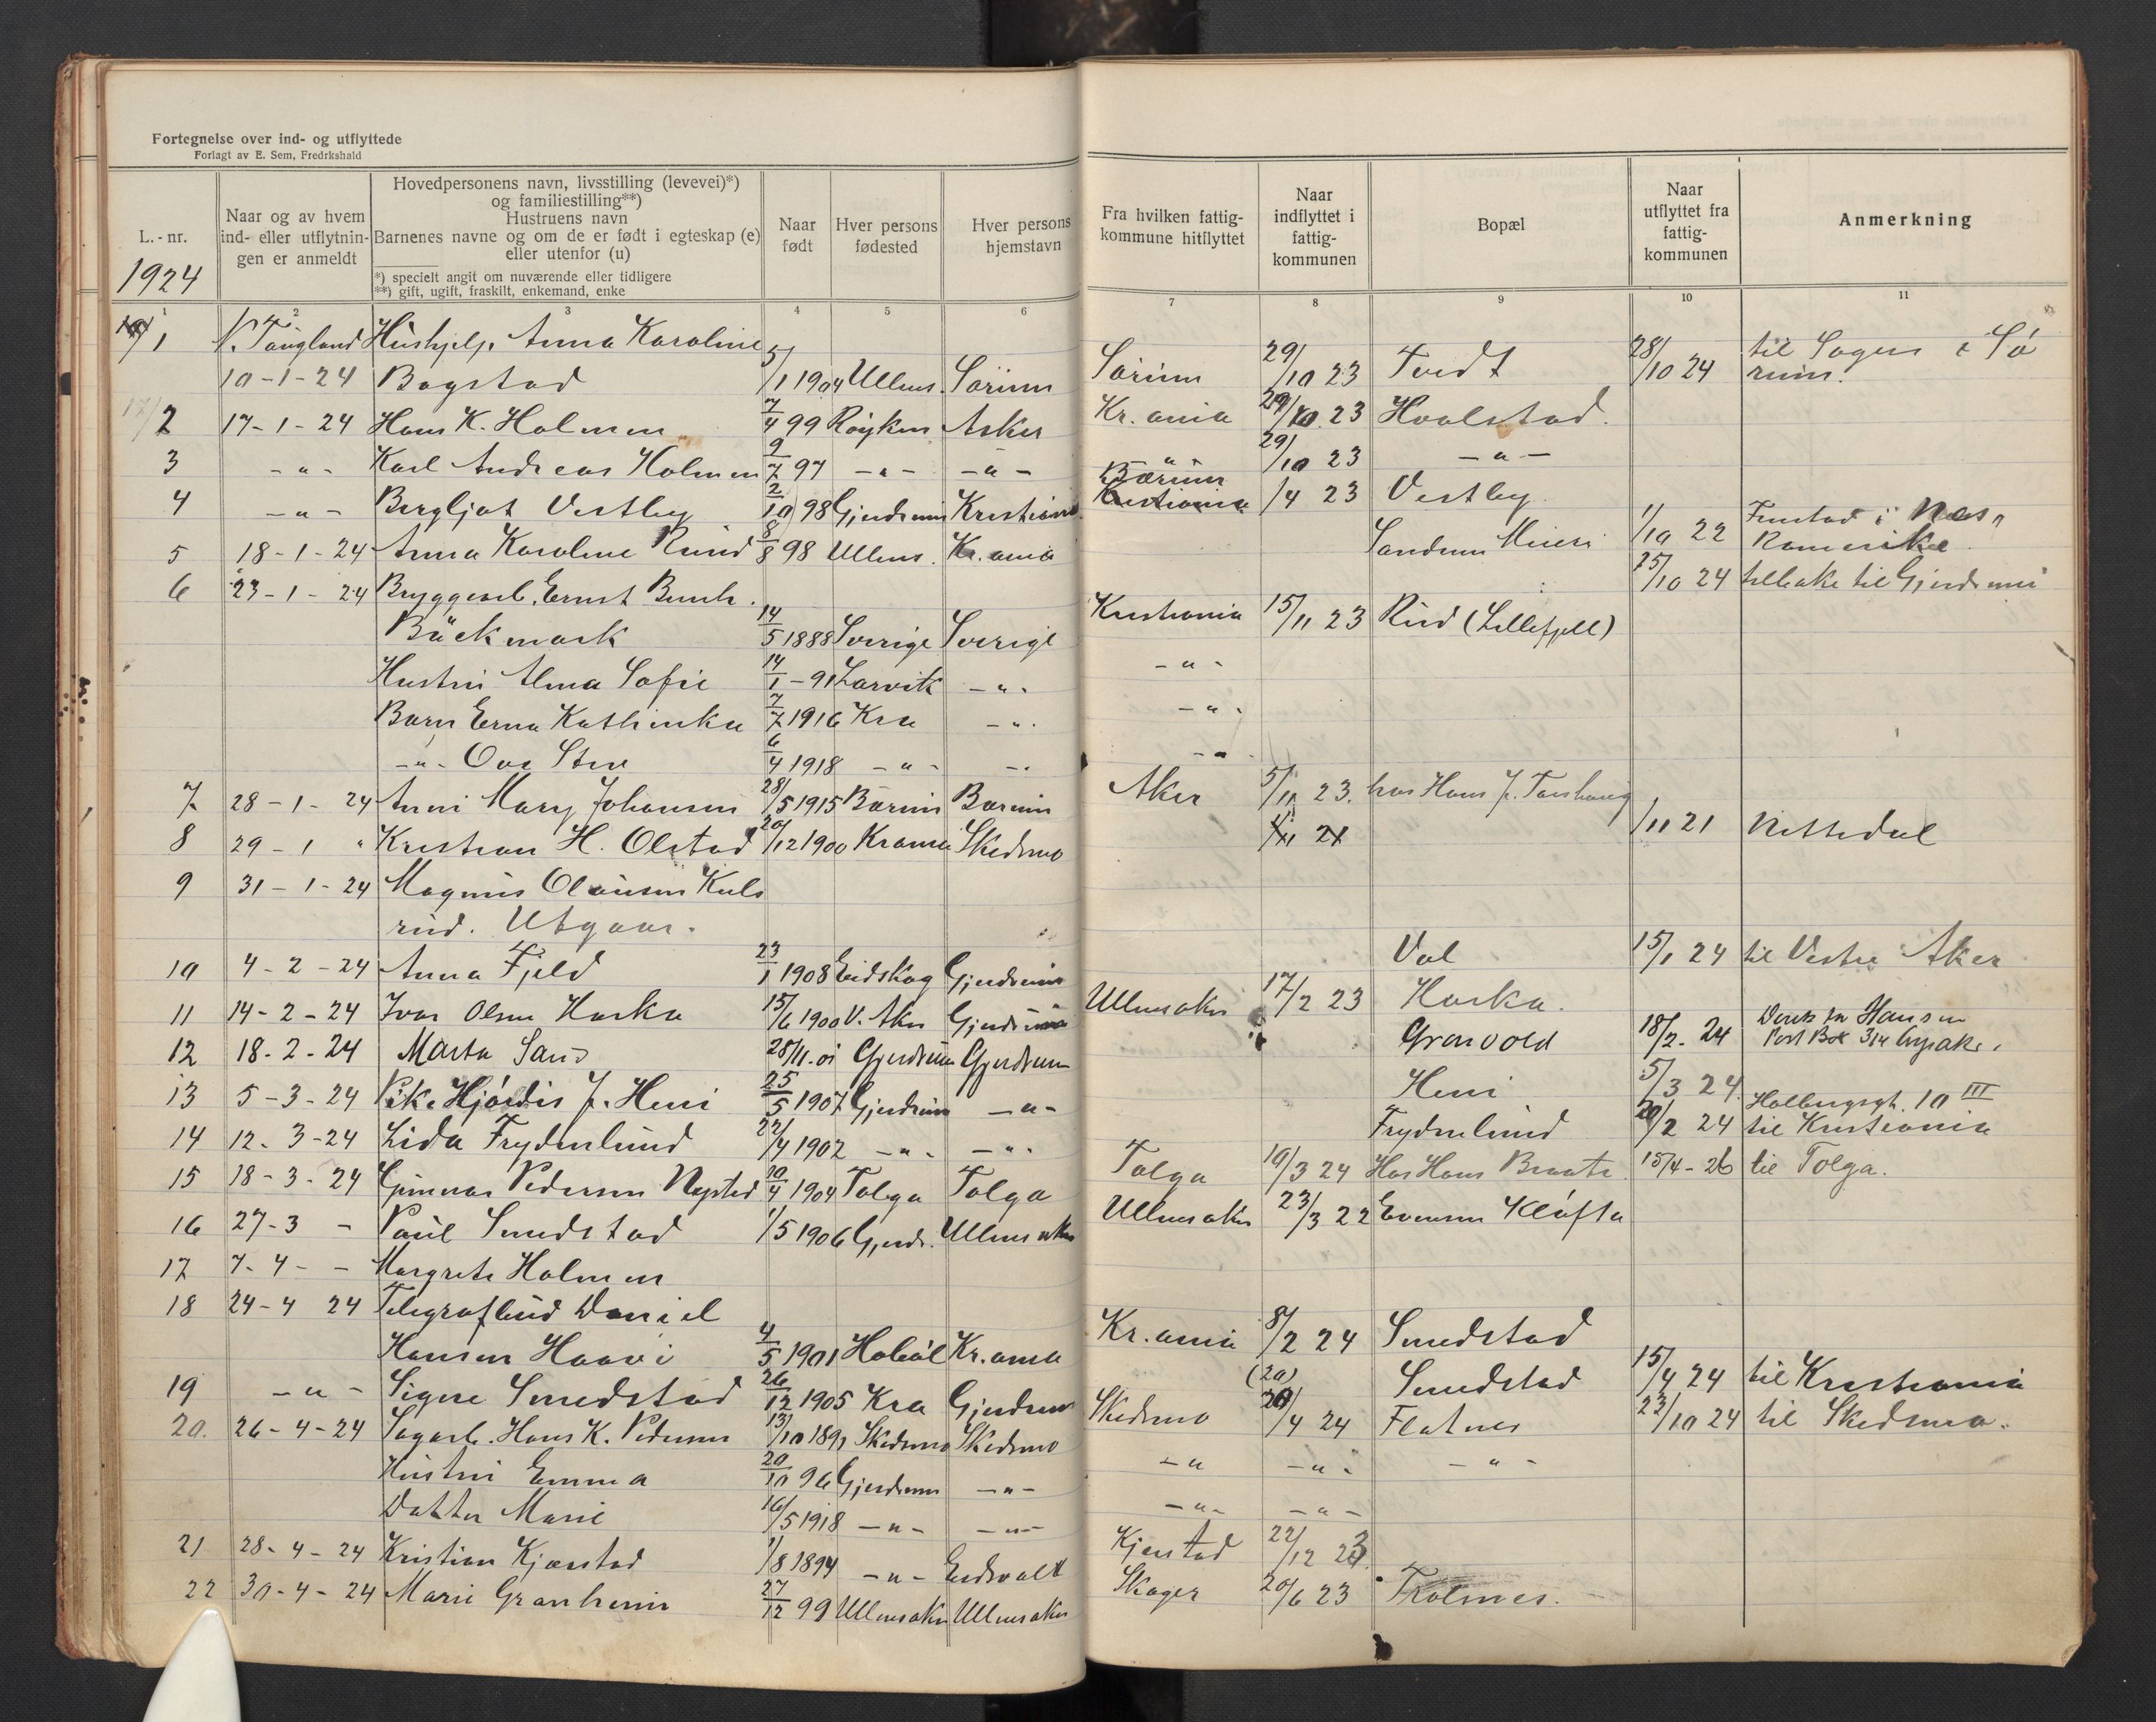 Fortegnelse over ind- og utflyttede
Forlagt av E. Sem, Fredrkshald
L.-nr.
1924
Naar og av hvem
ind- eller utflytnin-
gen er anmeldt
Hovedpersonens navn, livsstilling (levevei)*)
og familiestilling**)
Hustruens navn
Barnenes navne og om de er født i egteskap (e)
eller utenfor (u)
*) specielt angit om nuværende eller tidligere
**) gift, ugift, fraskilt, enkemand, enke
Naar
født
Hver persons
fødested
Hver persons
hjemstavn
Fra hvilken fattig-
kommune hitflyttet
Naar
indflyttet i
fattig-
kommunen
Bopæl
Naar
utflyttet fra
fattig-
kommunen
Anmerkning
1 2 3 4 5 6 7 8 9 10 11
1 Hushjelp Anna Karoline
10-1-24 Bogstad 5/1 1904 Ullens. Sörum Sörum 29/10 23 Tvedt 28/10 24 til Sogn i Sö
rum.
2 17-1-24 Hans K. Holmen 7/4 99 Röyken Asker Kr.ania 29/10 23 Hvalstad.
3 -"- Karl Andreas Holmen 9/7 97 -"- -"- -"- 29/10 23 -"-
4 -"- Bergljot Vestby 2/10 98 Gjerdrum Kristiania Bærum /4 23 Vestby
5 18-1-24 Anna Karoline Ruud 8/8 98 Ullens. Kr.ania Sandum Mieri 1/10 22 Fenstad i Nes,
Romerike
6 23-1-24 Bryggearb. Ernst Bernh. 25/10 24 tilbake til Gjerdrum
Bäckmark 14/5 1888 Sverige Sverige Kristiania 15/11 23 Ruud (Lillefjell)
Hustru Alma Sofie 14/1-91 Larvik -"- -"-
Barn Erna Kathinka 7/7 1916 Kra -"- -"-
-"- Ove Sten 6/4 1918 -"- -"- -"-
7 28-1-24 Anni Mary Johansen 28/5 1915 Bærum Bærum Aker 5/11 23. hos Hans J. Torshaug
8 29-1 " Kristian H. Olstad 20/12 1900 Krania Skedsmo 1/11 21 Nittedal
9 31-1-24 Magnus Olausen Kuls
rud. Utgaar.
10 4-2-24 Anna Fjeld 23/1 1908 Eidskog Gjerdrum Val 15/1 24 til Vestre Aker
11 14-2-24 Ivar Olsen Haska 15/6 1900 V. Aker Gjerdrum Ullensaker 17/2 23 Haska.
12 18-2-24 Marta Sand 28/11.01 Gjerdrum Gjerdrum Gronvold 18/2. 24 Hansen
Post Box 314
13 5-3-24 Pike Hjördis J. Heni 25/5 1907 Gjerdrum -"- Heni 5/3 24.
14 12-3-24 Lida Frydenlund 22/4 1902 -"- -"- Frydenlund 20/2 24 Holbergsgt. 10 III
til Kristiania
15 18-3-24 Gunnar Pedersen Nysted 10/4 1904 Tolga Tolga Tolga 10/3 24 Hos Hans Braate 15/4-26 til Tolga.
16 27-3 - Paul Smedstad 1/5 1906 Gjerdr. Ullensaker Ullensaker 23/3 22 Evensen Klöfta
17 7-4- - Margrete Holmen
18 24-4 24 Telegrafbud Daniel
Hansen Haavi 4/5 1901 Hobøl Kr.ania Kr.ania 8/2 24 Smedstad
19 -"- Signe Smedstad 26/12 1905 Kra Gjerdrum Smedstad 15/4 24 til Kristiania
20. 26-4-24 Sagarb. Hans K. Pedersen 13/10 1891 Skedsmo Skedsmo Skedsmo (20) 20/4 24 Flatner 23/10 24 til Skedsmo.
Hustru Emma 20/10 96 Gjerdrum -"- -"- -"- -"-
Datter Marie 16/5 1918 -"- -"- -"- -"-
21 28-4-24 Kristian Kjærstad 1/8 1894 -"- Eidsvold Kjerstad 22/12 23
22 30-4-24 Marie Granheim 27/12 99 Ullensaker Ullensaker Skoger 20/6 23 Holmes.